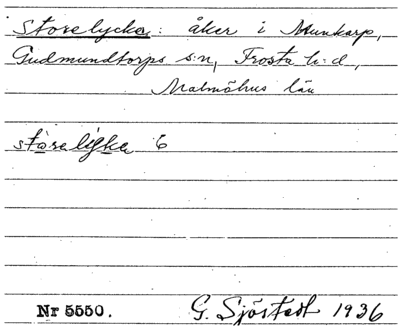 Storelycka: åker i Munkarp,
Gudmundtorps s:n, Frosta h:d,
Malmöhus län
stơreliɡ̵ka 6
Nr 5550.
G. Sjöstedt 1936